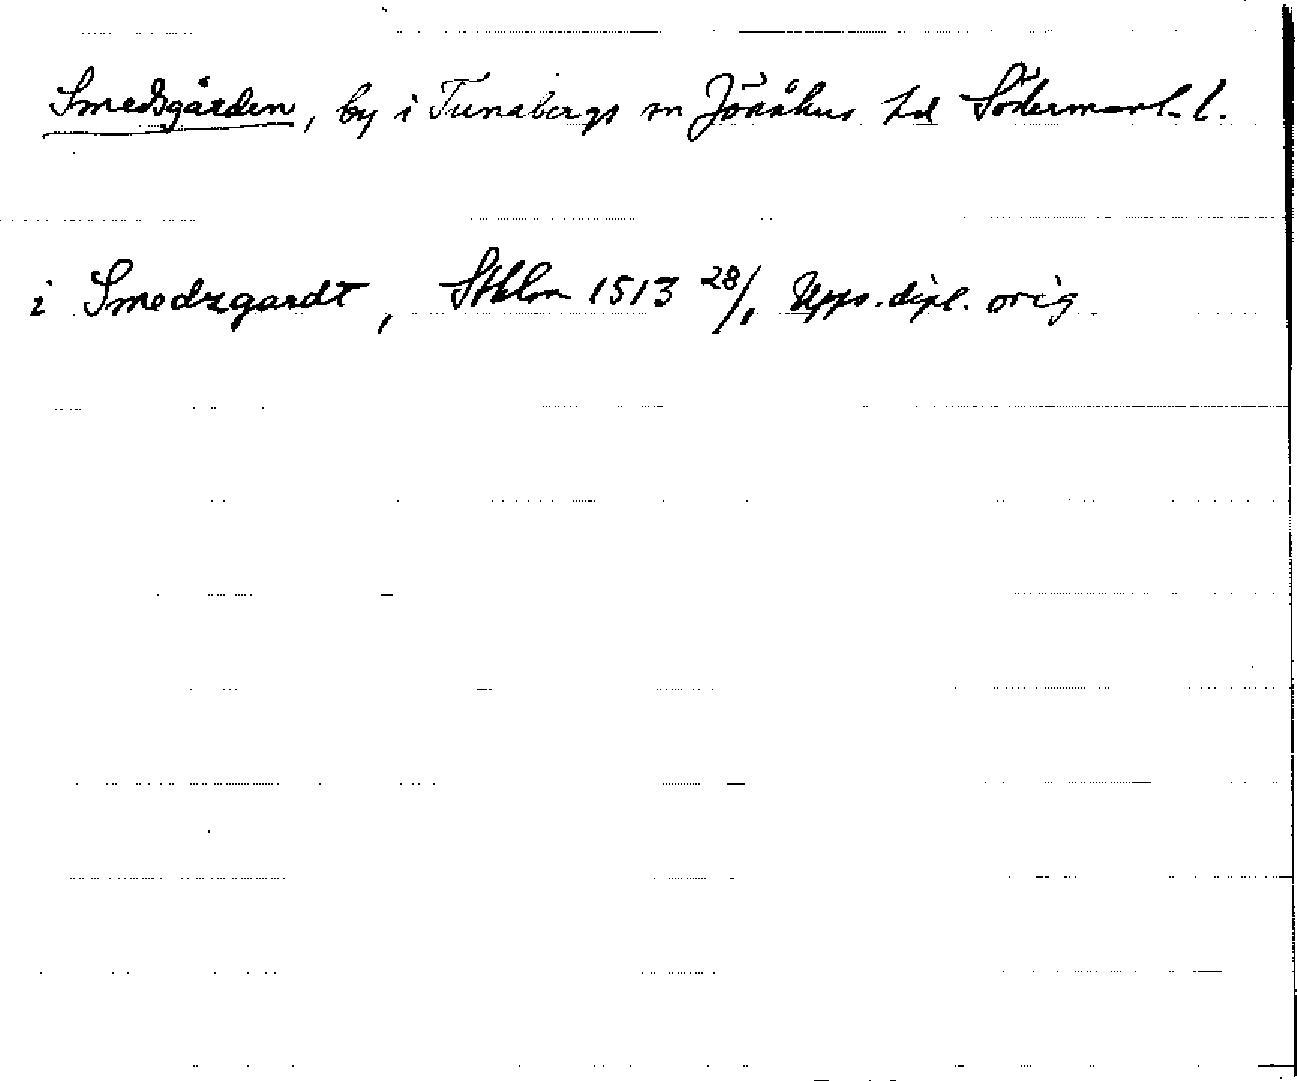 Smedsgården, by i Tunabergs sn Jönåkers hd Södermanl. l.
i Smedzgardt, Sthlm 1513 28/1 Upps. dipl. orig